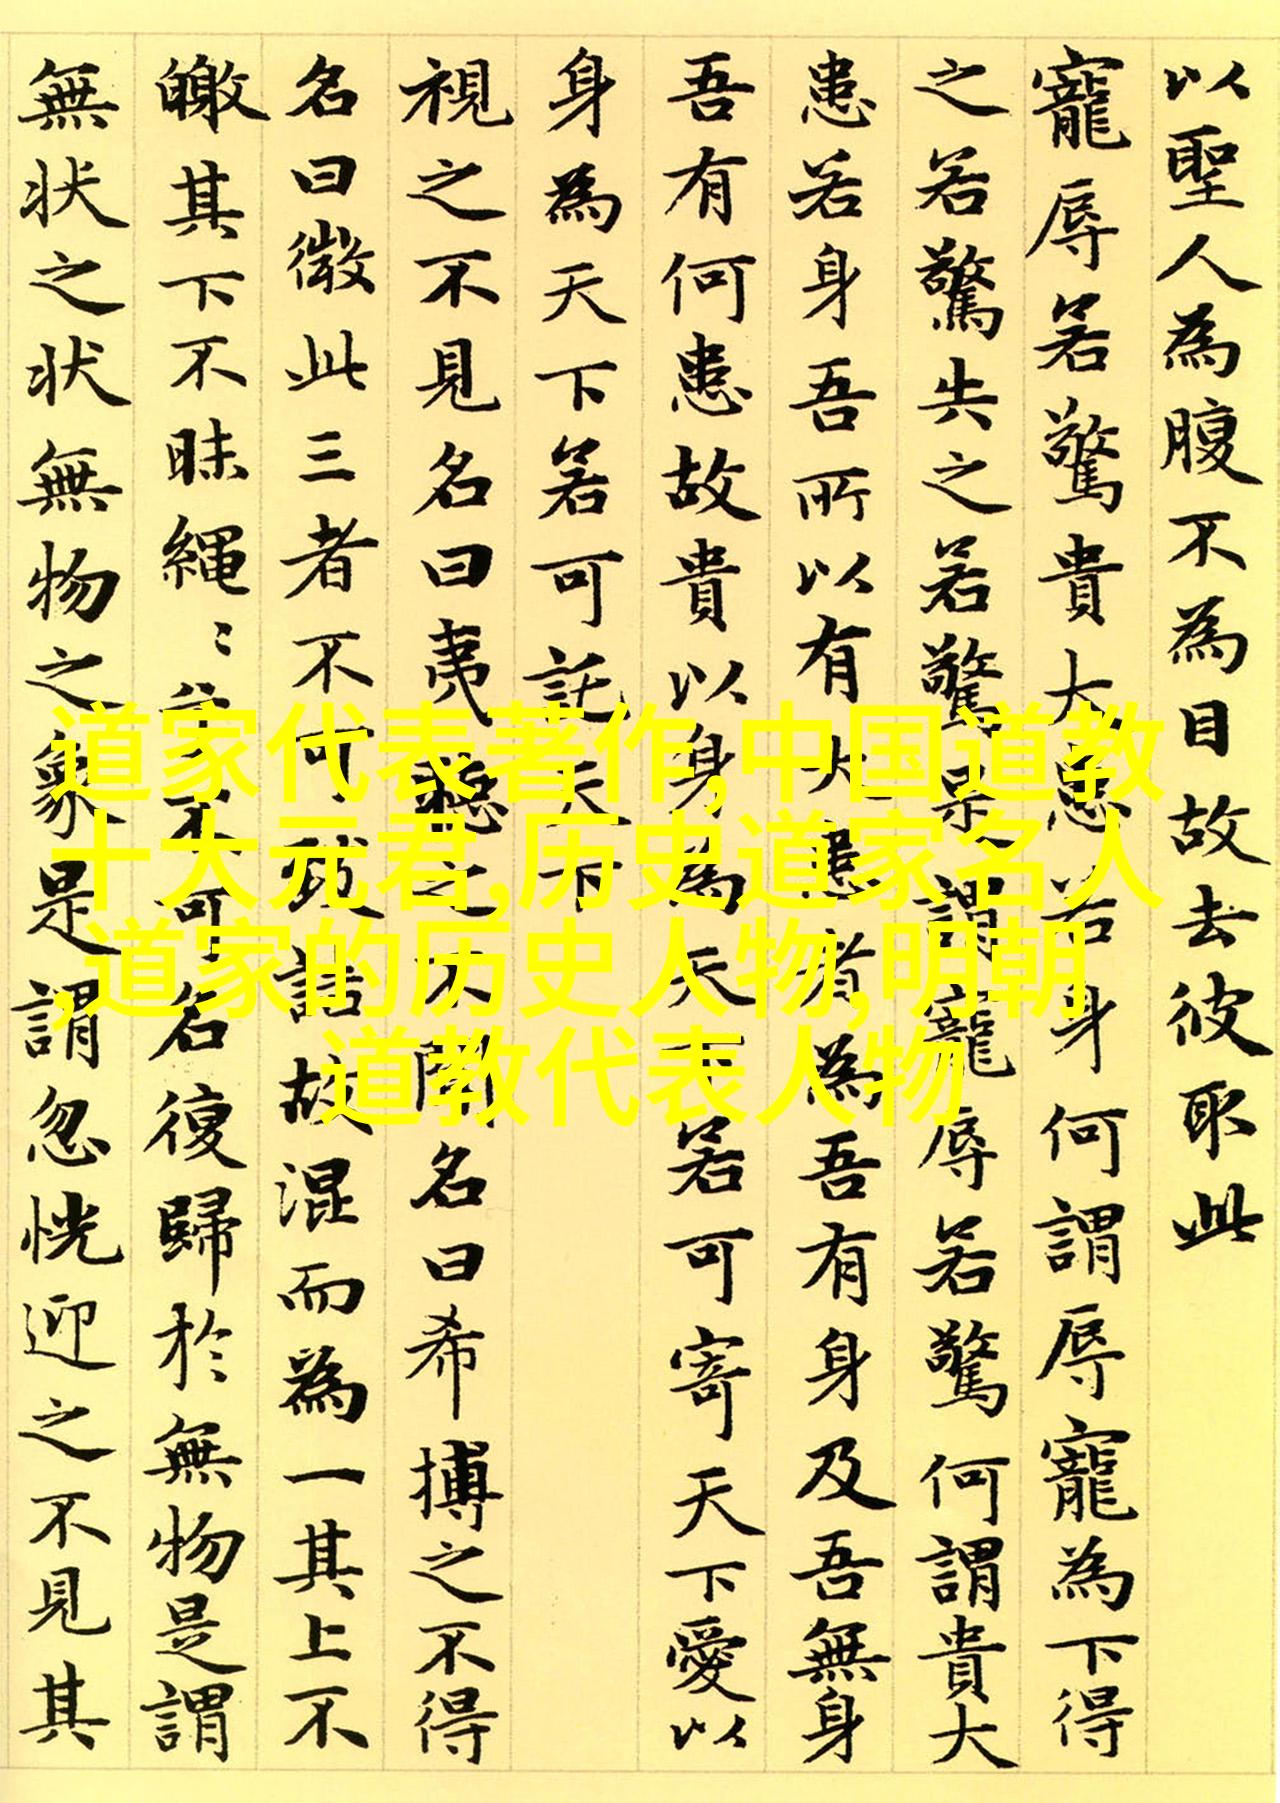 以聖人為腹不為目故去彼取此
寵辱若驚貴大患若身何謂辱寵為下得
之若驚失之若驚是謂寵辱若驚何謂貴大
患若身吾所以有大患者為吾有身及吾無身
吾有何患故貴以身為天下若可寄天下愛以
身為天下若可託天下
視之不見名曰夷聽之不聞名曰希搏之不得
名曰微此三者不可致詰故混而為一其上不
皦其下不昧繩〻兮不可名復歸於無物是謂
無状之状無物之象是謂忽恍迎之不見其
道家代表著作,中国道教
十大元君,历史道家名人
,道家的历史人物,明朝
道教代表人物